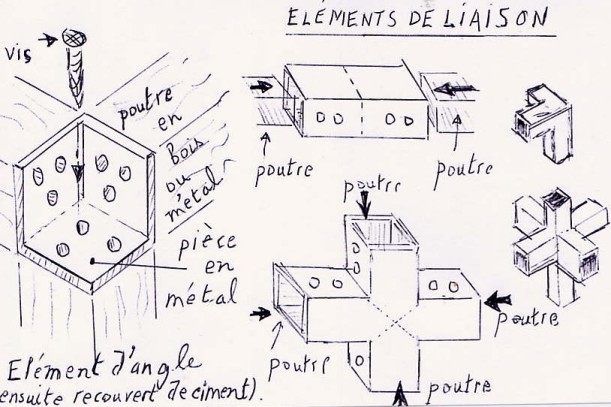 ELÉMENTS DE LIAISON
vis
poutre
en
Bois
ou
métal
pièce
en
métal
Elément d'angle
(ensuite recouvert de ciment).
poutre
poutre
poutre
poutre
poutre
poutre